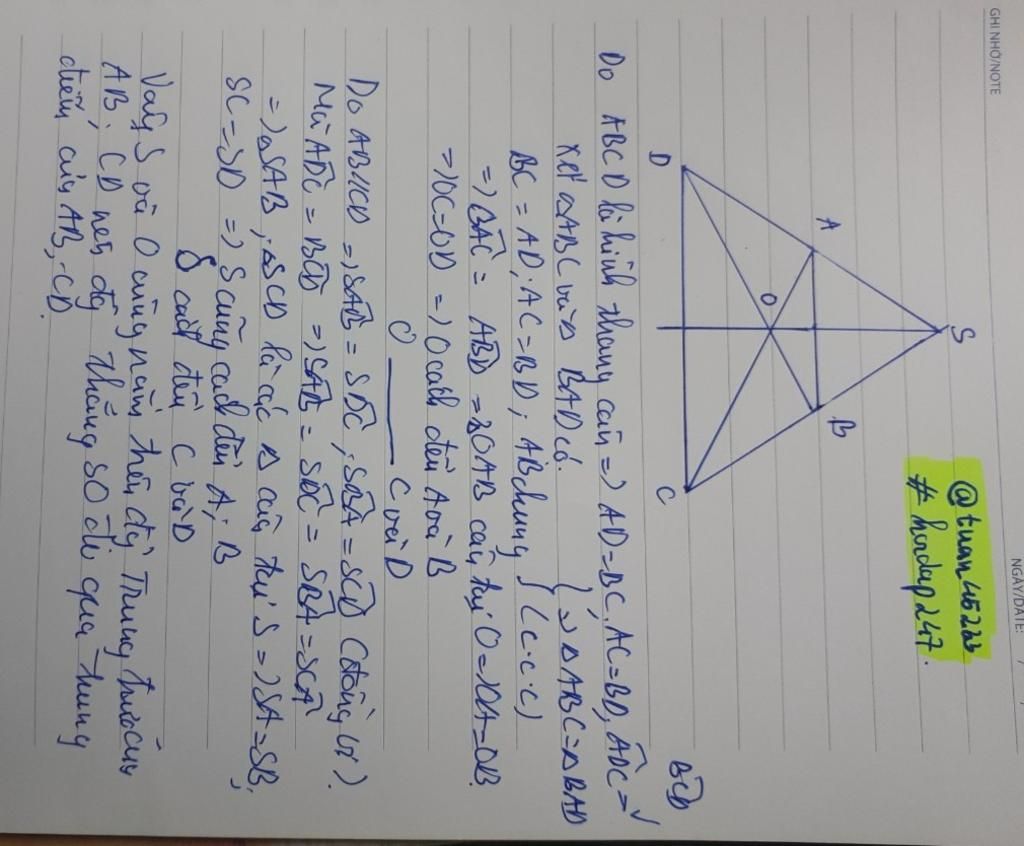 GHI NHỚ/NOTE
NGÀY/DATE: / /
@tuan45223
# hoidap247.
S
A
B
O
D
C
BĈD
Do ABCD là hình thang cân => AD=BC, AC=BD, ADĈ = ✓
Xét △ABC và △ BAD có.
BC = AD; AC = BD; AB chung } => △ABC = △BAD
(c.c.c)
=> BÂC = AB̂D => △OAB cân tại O => OA=OB.
=> OC=OD => O cách đều A và B
O —— C và D
Do AB//CD => SÂB = SD̂C, SB̂A = SĈD (đồng vị).
Mà AD̂C = BĈD => SÂB = SD̂C = SB̂A = SĈD
=> △SAB, △SCD là các △ cân tại S => SA=SB,
SC=SD => S cũng cách đều A; B
S cách đều C và D
Vậy S và O cùng nằm trên đg Trung trực của
AB; CD nên đg thẳng SO đi qua trung
điểm của AB, CD.